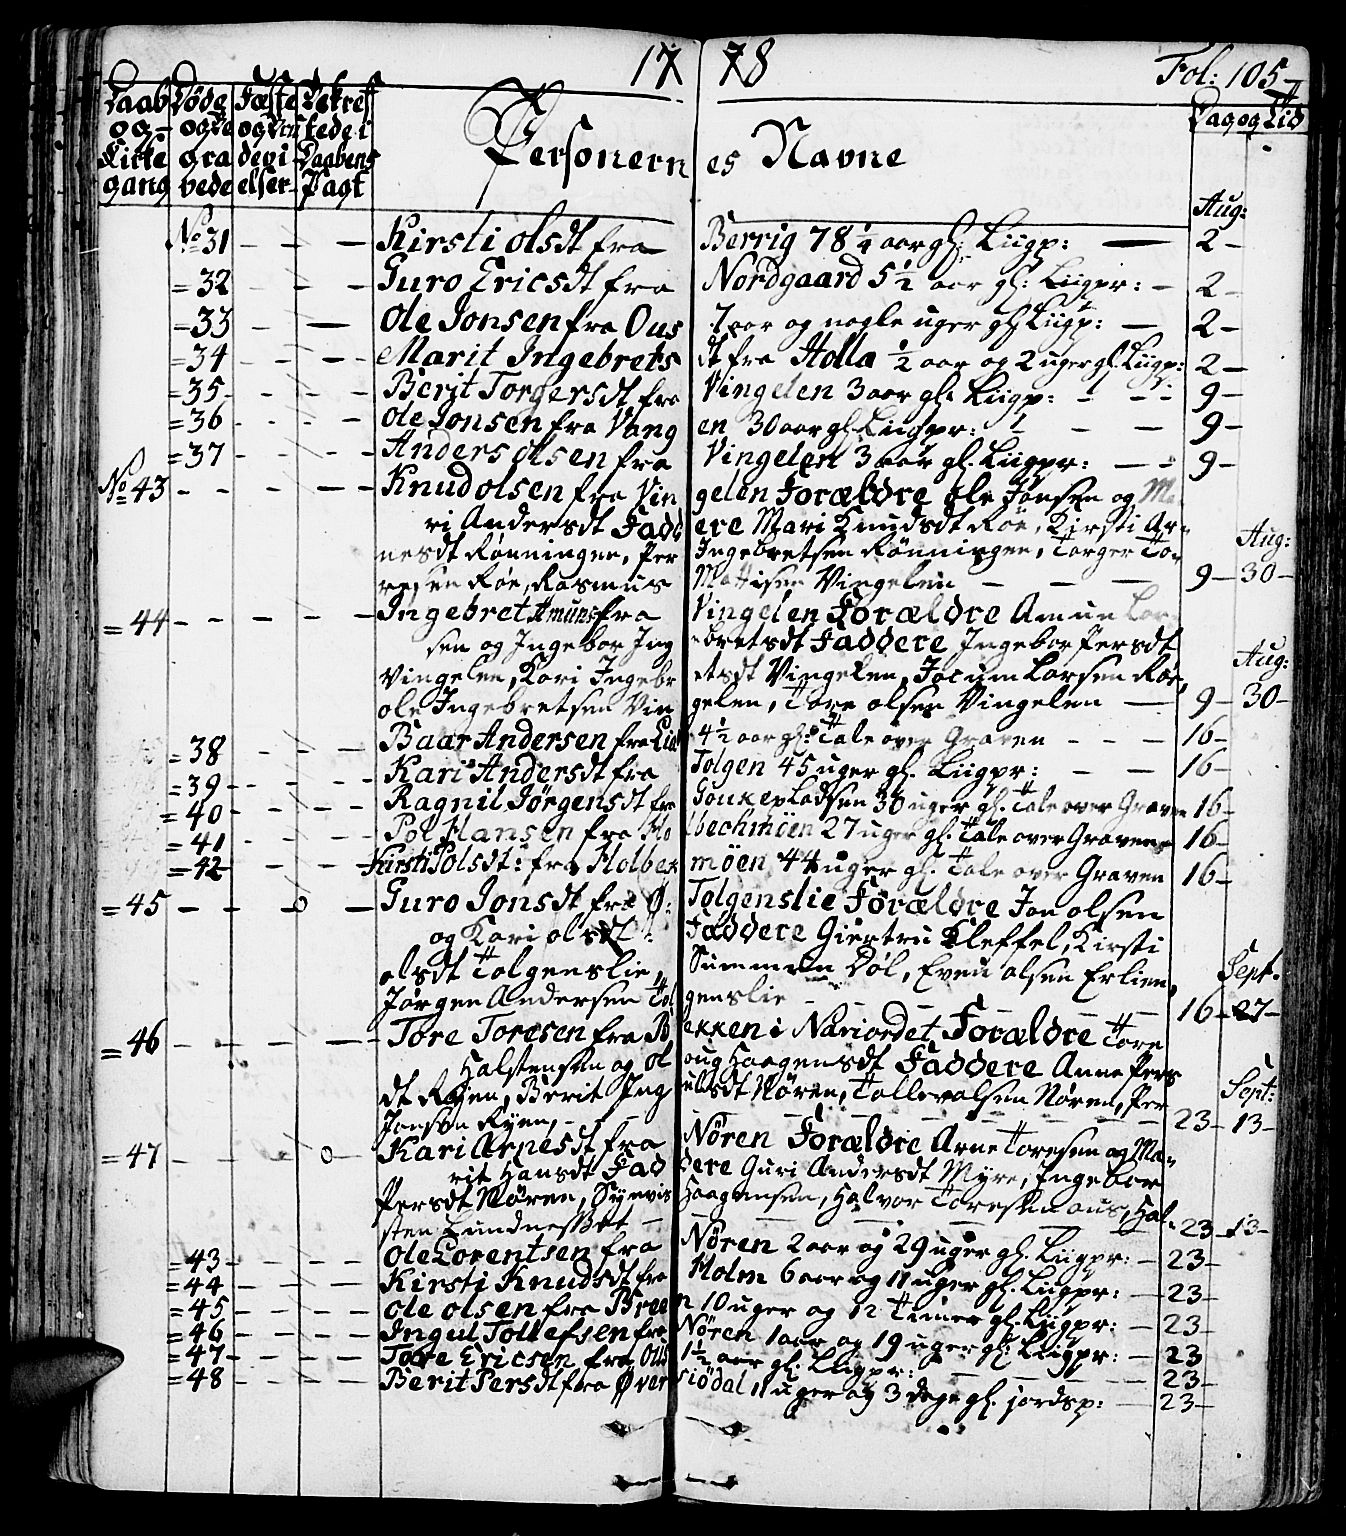 17 78 Fol: 105
Daab Døde Fæste Dekref Dag og Tid
og og Be og Tro tede i
Kirke gra delvi Daabens Personern es Navne
gang vede elser Pagt
Aug:
No 31 - - - Kirsti Olsdt fra Berrig 78 1/4 aar gl: Liigp: - 2 -
= 32 - - - Guro Ericsdt fra Nordgaard 5 1/2 aar gl: Liigpr: - 2 -
= 33 - - - Ole Jonsen fra Ous 7 aar og nogle uger gl: Liigp: - 2 -
= 34 - - - Marit Ingebrets dt fra Holla 1/2 aar og 2 uger gl. Liigp: 2 -
= 35 - - - Berit Torgersdt fra Vingelen 3 aar gl: Liigp: - - - 9 -
= 36 - - - Ole Jonsen fra Vang en 30 aar gl. Liigpr: - - 9 -
= 37 - - - Anders Olsen fra Vingelen 3 aar gl. Liigpr: - - 9 -
No 43 - - - - Knud Olsen fra Vin gelen Forældre Ole Jonsen og Ma
ri Andersdt Fadd ere Mari Knudsdt Røe, Kirsti Ar=
nesdt Rønningen, Per Ingebretsen Rønningen, Torger To= Aug:
resen Røe, Rasmus Mattisen Vingelen - - - 9 - 30 -
= 44 - - - - Ingebret Amuns fra Vingelen Forældre Amun Lor
sen og Ingebor Ing ebretsdt Faddere Ingebor Persdt
Vingelen, Kari Ingebr etsdt Vingelen, Jocum Larsen Røe, Aug:
Ole Ingebretsen Vin gelen, Tore Olsen Vingelen - 9 - 30 -
= 38 - - - Baar Andersen fra Lie 4 1/2 aar gl: Tale over Graven - - - 16 -
= 39 - - - Kari Andersdt fra Tolgen 45 uger gl. Liigpr: - - 16 -
= 40 - - - Ragnil Jørgensdt fra 36 uger gl. Tale over Graven 16 -
= 41 - - - Pol Hansen fra Ho lbechmöen 27 uger gl. Tale over Graven 16 -
= 42 - - - Kirsti Polsdt: fra Holbek möen 44 uger gl. Tale over Graven 16 -
= 45 - - 0 - Guro Jonsdt fra Ø: Tolgenslie Forældre Jon Olsen
og Kari Olsdt: Faddere Giertru Kleffel, Kirsti
Olsdt Tolgenslie, Summen Døl, Even Olsen Erlien, Sept.
Jørgen Andersen Tol genslie - - - - 16 - 27 -
= 46 - - - - Tore Toresen fra B ekken i Nariordet, Forældre Tore
Halstensen og Ol oug Haagensdt Faddere Anne Pers
dt Ryen, Berit Ing Nøren, Tollev Olsen Nøren, Per Sept:
Jonsen Ryen, - - - - - 23 - 13 -
= 47 - - 0 - Kari Arnesdt fra Nøren Forældre Arne Toresen og Ma=
rit Hansdt Fad dere Guri Andersdt Myre, Ingebor
Persdt Nøren, Synvis Haagensen, Halvor Toresen Ous, Hal=
sten - - - - 23 - 13 -
= 43 - - - Ole Lorentsen fra Nøren 2 aar og 29 uger gl. Liigpr: - 23 -
= 44 - - - Kirsti Knudsdt fra Holm 6 aar og 11 uger gl. Liigpr: - 23 -
= 45 - - - Ole Olsen fra Bree n 10 uger og 12 Timer gl. Liigpr: - 23 -
= 46 - - - Ingul Tollefsen fra Nøren 1 aar og 19 uger gl: Liigpr: - 23
= 47 - - - Tore Ericsen fra Ous 1 1/2 aar gl. Liigpr: - - - 23 -
= 48 - - - Berit Persdt fra Øver siödal 11 uger og 3 dage gl. jordsp: - 23 -